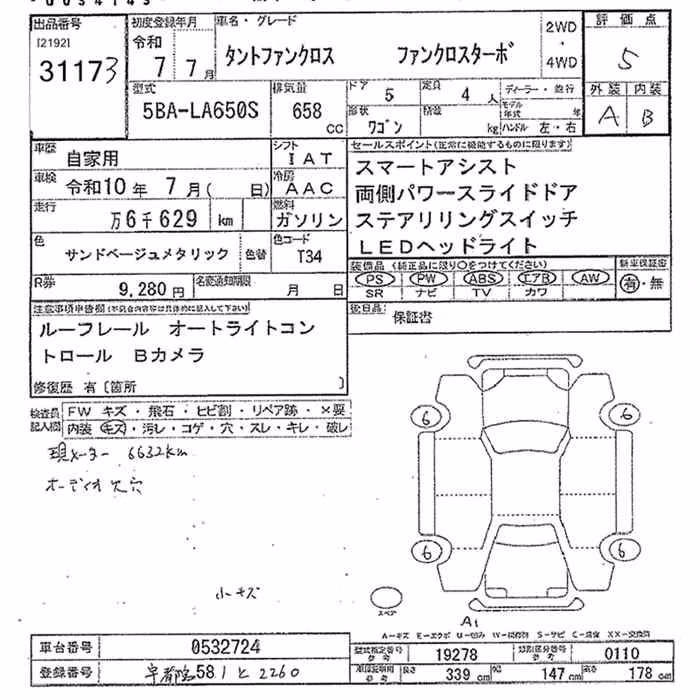 出品番号 初度登録年月 車名・グレード 2WD・4WD 評価点
[2192] 令和
31173 7 7月 タントファンクロス ファンクロスターボ 5
型式 排気量 ドア 5 定員 4人 ディーラー・並行 外装 内装
5BA-LA650S 658 cc 形状 ワゴン 積載 kg モデル年式 年 ハンドル 左・右 A B
車歴 自家用 シフト IAT セールスポイント(正常に機能するものに限ります)
車検 令和10年 7月( 日) 冷房 AAC スマートアシスト
走行 万6千629 km 燃料 ガソリン 両側パワースライドドア
色 サンドベージュメタリック 色替 色コード T34 ステアリリングスイッチ
LEDヘッドライト
R券 9,280円 名変通知期限 月 日 装備品(純正品に限り○をつけてください) 新車保証書
PS PW ABS エアB AW 有・無
SR ナビ TV カワ
注意事項申告欄(不具合内容は具体的に記入して下さい) 後日品 保証書
ルーフレール オートライトコン
トロール Bカメラ
修復歴 有〔箇所 〕
検査員記入欄 FW キズ・飛石・ヒビ割・リペア跡・×要
内装 キズ・汚レ・コゲ・穴・スレ・キレ・破レ
現メーター 6632km
オーディオ欠穴
小キズ
6 6
6 6
スペア
A1
A-キズ E-エクボ U-凹み W-補修跡 S-サビ C-腐食 XX-交換済
車台番号 0532724 型式指定番号 参考 19278 類別区分番号 参考 0110
登録番号 宇都宮 581 と 2260 長さ 339 cm 幅 147 cm 高さ 178 cm